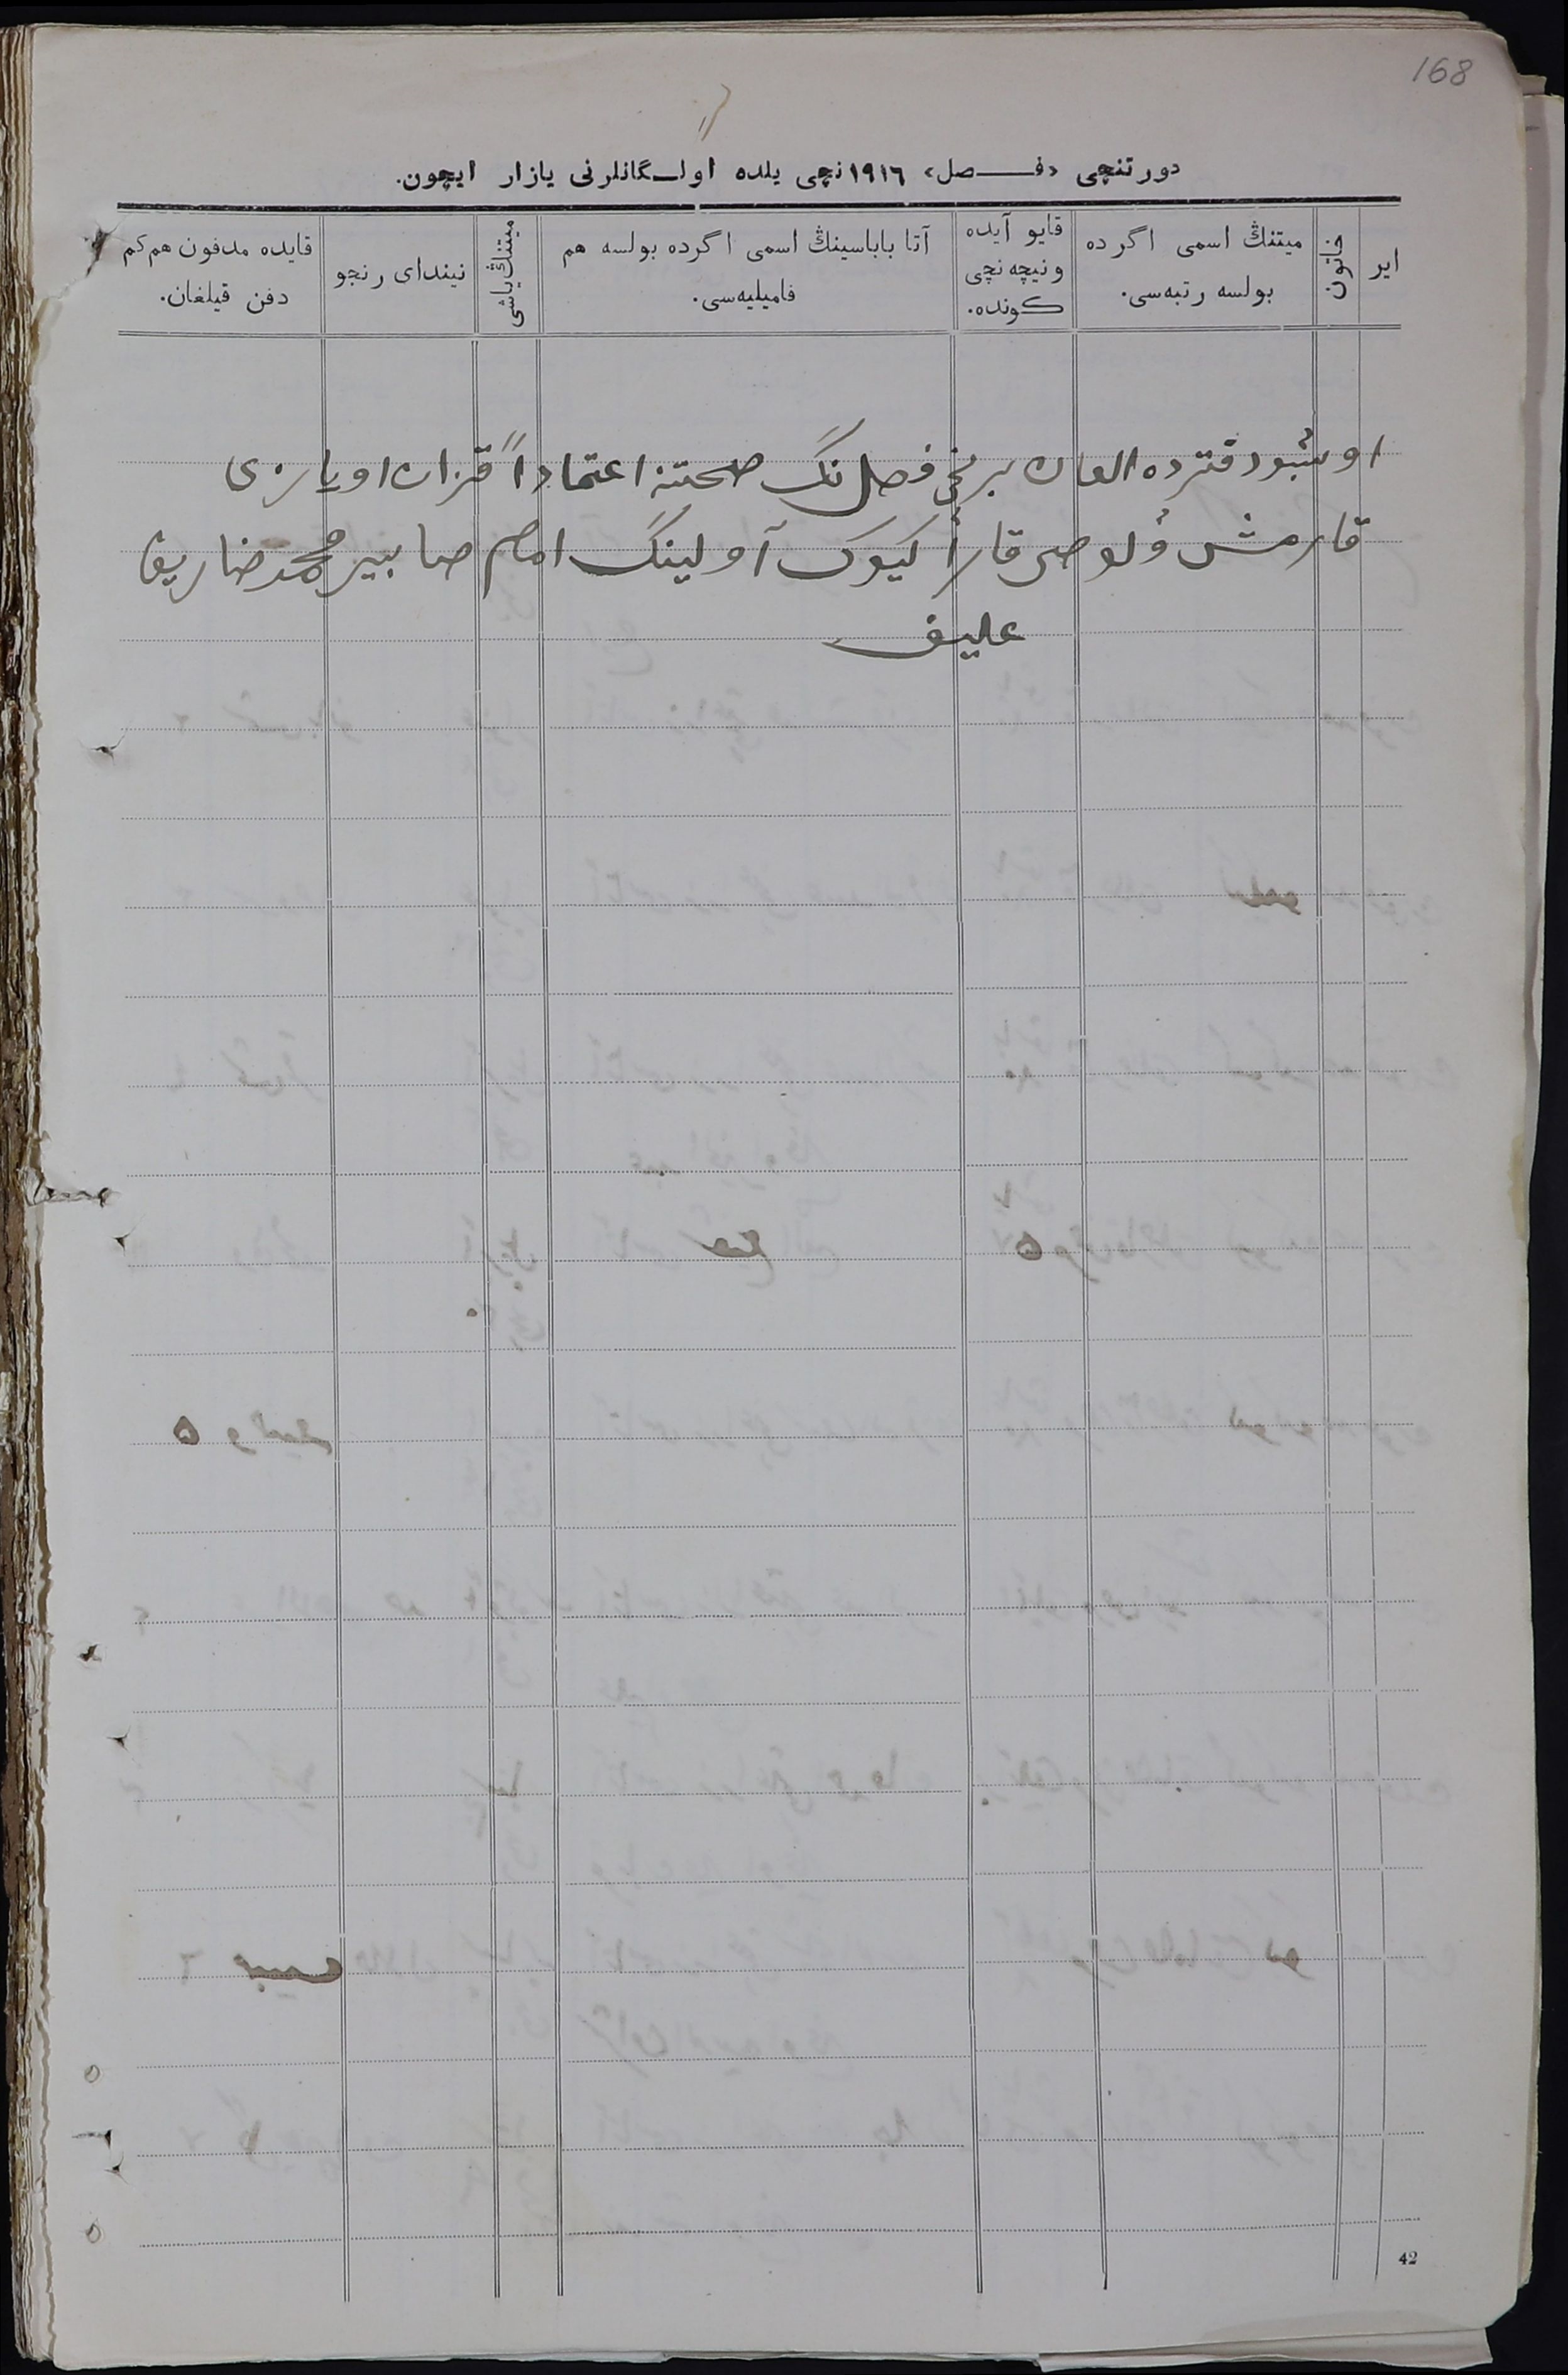 168
دورتنچی «فـصل» ١٩١٦نچی یلده اولـگانلرنی یازار ایچون.
ایر
خاتون
میتنڭ اسمی اگرده
بولسه رتبه‌سی.
قایو آیده
ونیچه نچی
کونده.
آتا باباسینڭ اسمی اگرده بولسه هم
فامیلیه‌سی.
میتنڭ یاشی
نیندای رنجو
قایده مدفون هم کم
دفن قیلغان.
اوشبو دفترده برنچی فصل نگ صحتنه اعتماداً قزان اویازی
قارمش ولوصی آولینگ امام
علیف
42